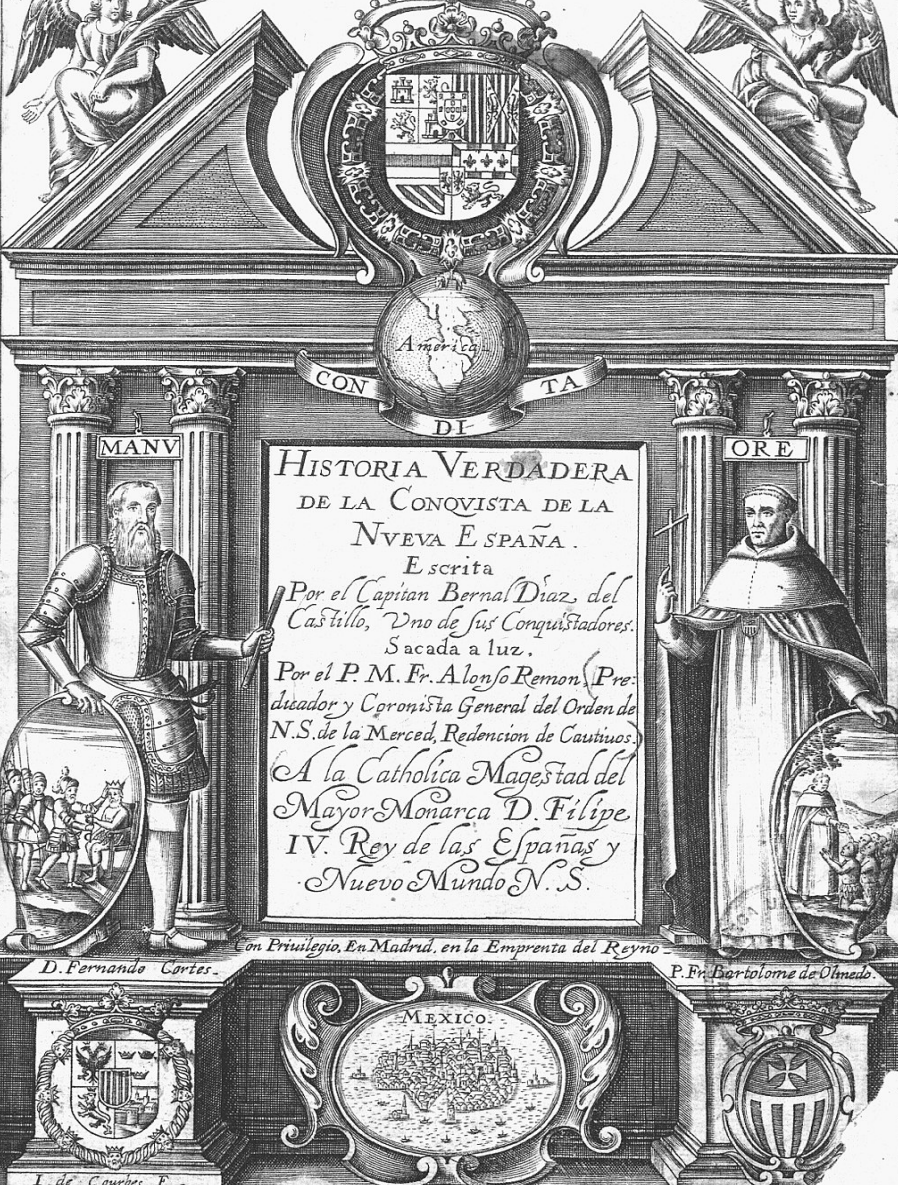 America
CON
DI
TA
MANV
ORE
HISTORIA VERDADERA
DE LA CONQVISTA DE LA
NVEVA ESPAÑA.
Escrita
Por el Capitan Bernal Diaz, del
Castillo, Vno de sus Conquistadores.
Sacada a luz,
Por el P. M. Fr. Alonso Remon, (Pre:
dicador y Coronista General del Orden de
N.S. de la Merced, Redencion de Cautiuos.)
A la Catholica Magestad del
Mayor Monarca D. Filipe
IV. Rey de las Españas y
Nuevo Mundo N. S.
Con Priuilegio, En Madrid, en la Emprenta del Reyno
D. Fernando Cortes
P. Fr. Bartolome de Olmedo.
MEXICO
I. de Courbes F.